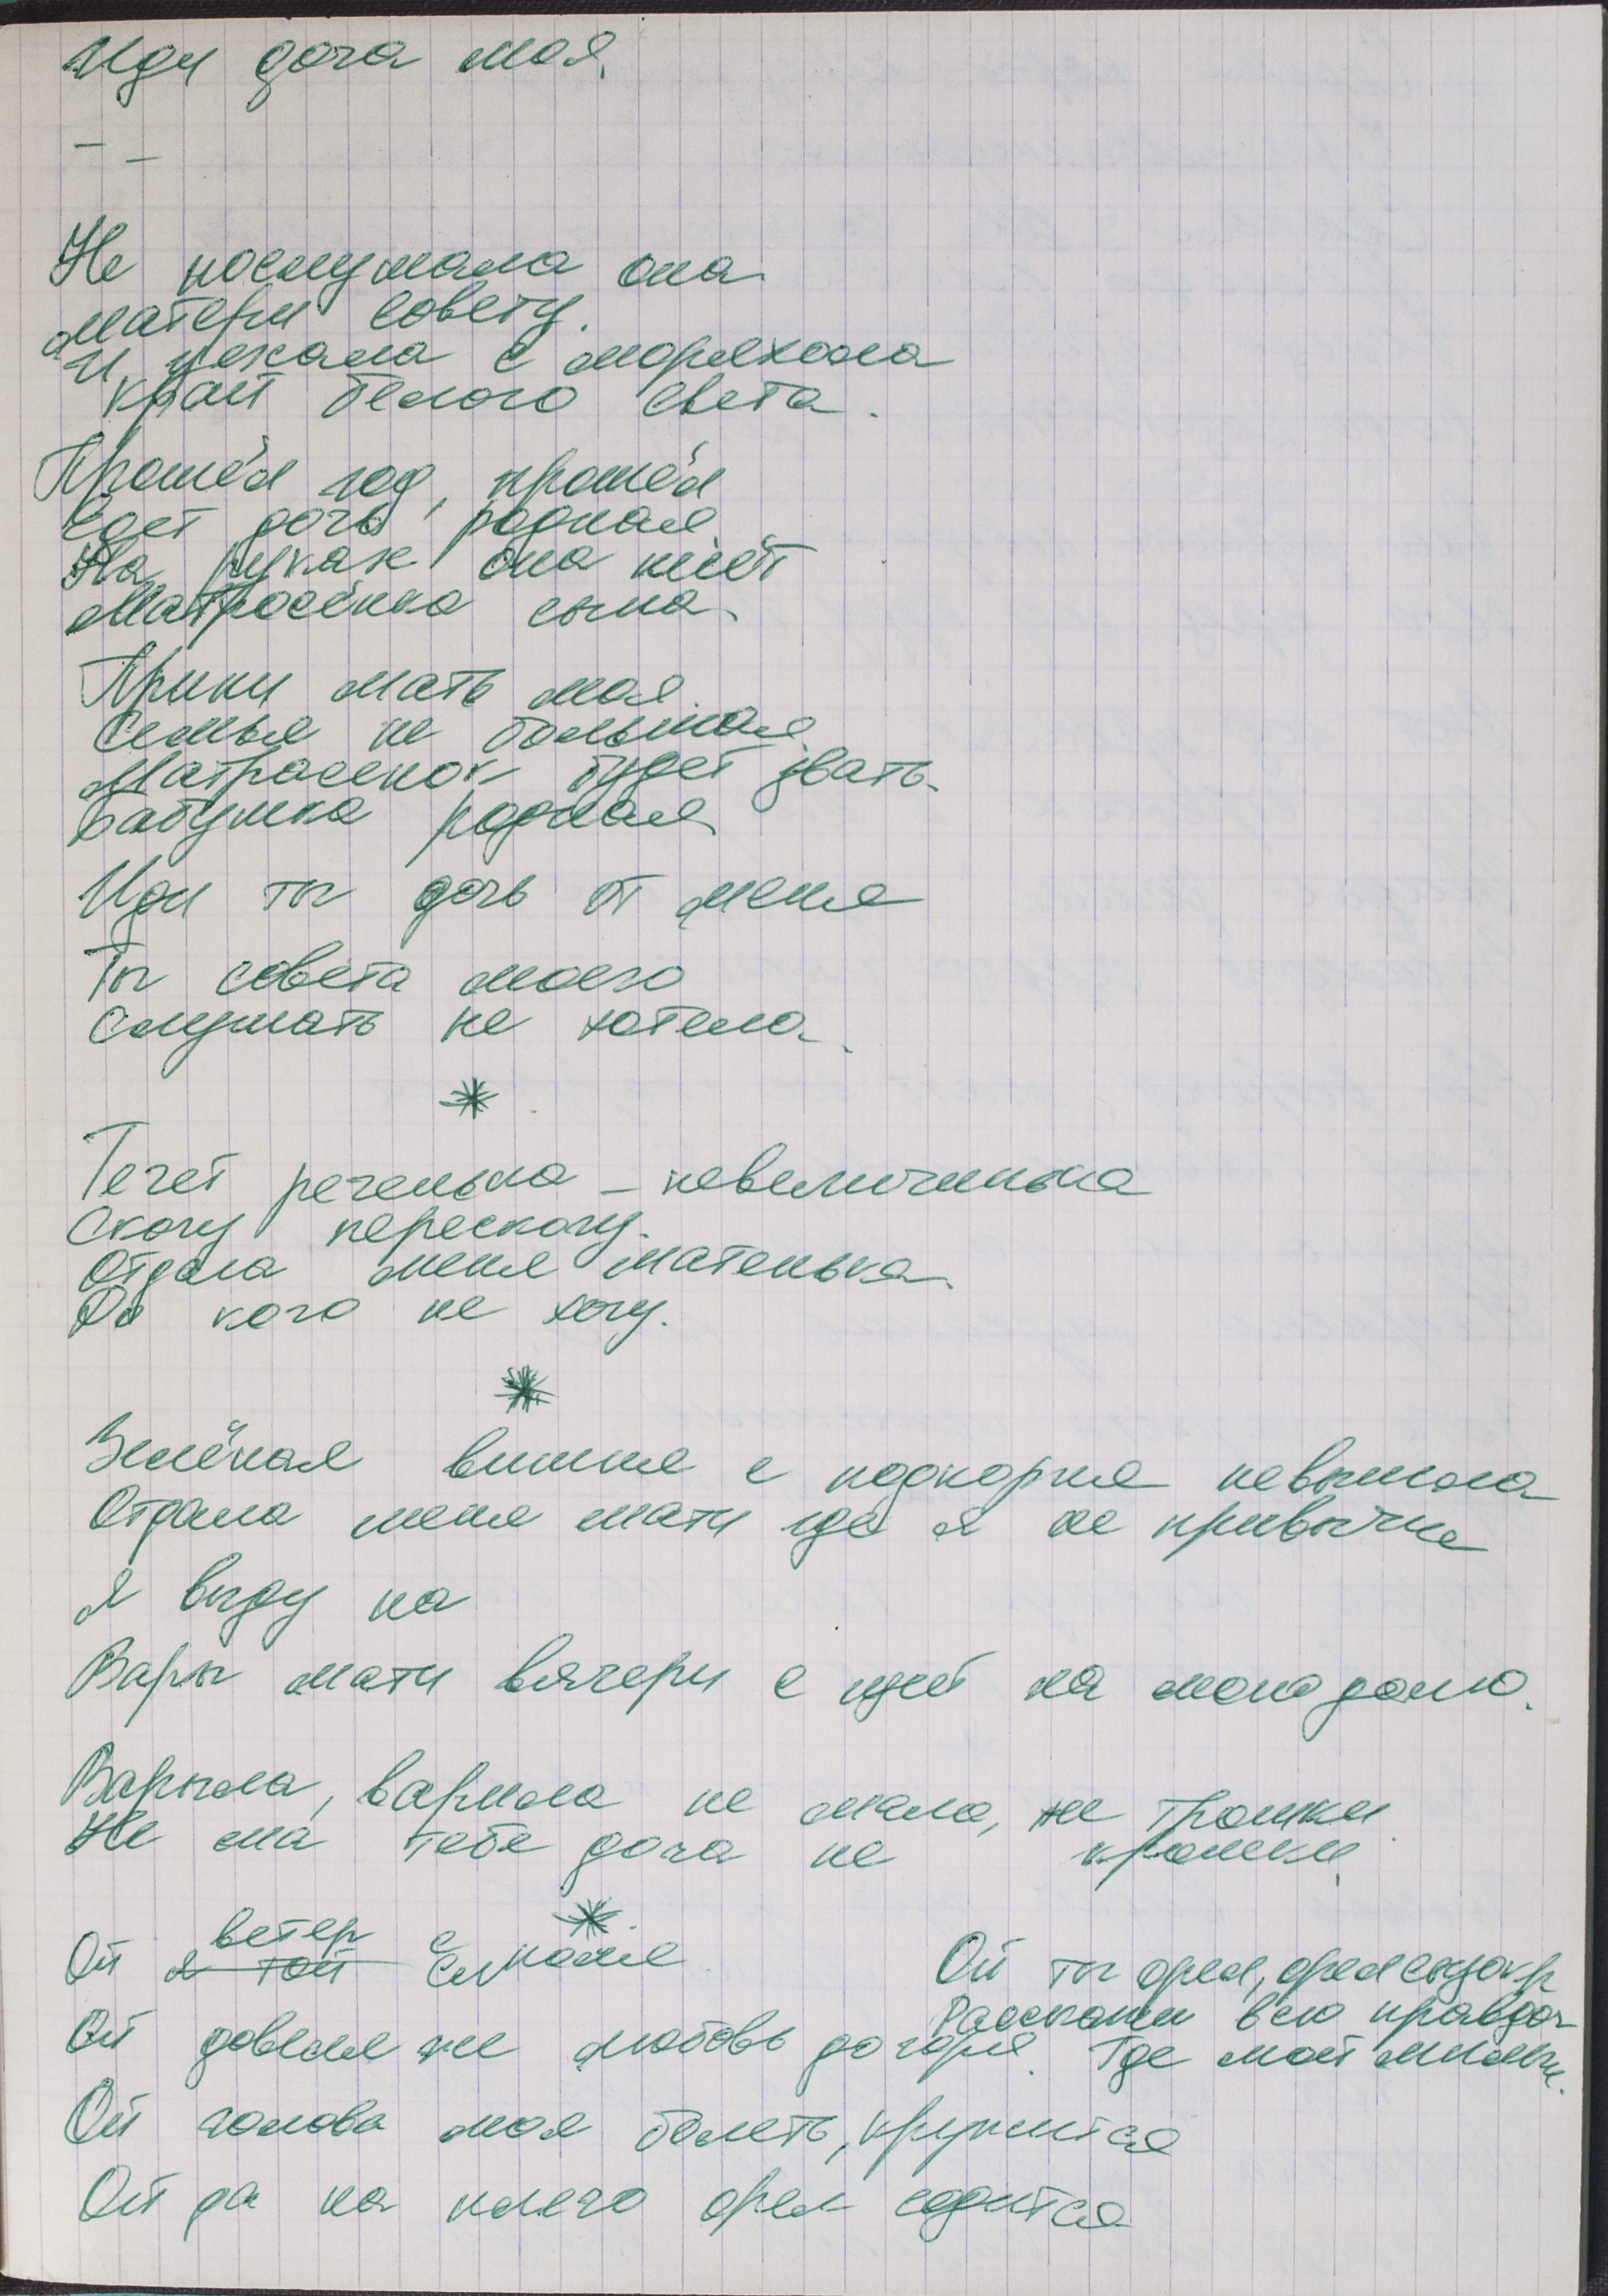 Иди доча моя.
— —
Не послушала она
матери совету.
И уехала с морячком
край белого света.
Прошёл год, прошёл
Едет дочь родная
На руках она несёт
Матросёнка сына.
Прими мать моя
Семья не большая
Матросенок будет звать
бабушка родная
Иди ты дочь от меня
Ты совета моего
Слушать не хотела.
*
Течет реченька - невеличинька
Скочу перескочу.
Отдала меня матенька
За кого не хочу.
*
Зелёная вишня с подкорня невышла
Отдала меня мати где я не привычна
Я выду на
Вары мати вячери с щей на мою долю.
Варыла, варила не мало, не трошки
Не ма тебе доча не крошки
*
Ой ветер с поля
я той
Ой довела же любовь до горя.
Ой голова моя болить, кружится
Ой да на плечо орел садится
Ой ты орел, орел
Расскажи всю
Где мой